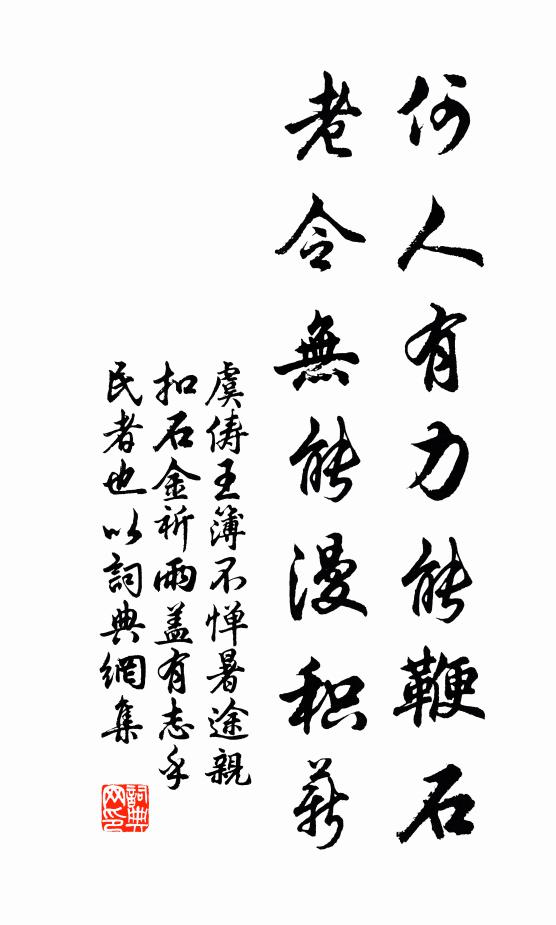 何人有力能鞭石
老令無能漫积薪
虞俦王簿不惮暑途親
扣石金祈雨盖有志乎
民者也以詞典網集
詞典網印